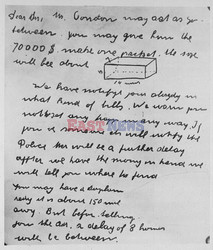 Dear Sir, Mr. Condon may act as go
between. you may give him the
70000 $. make one packet. the size
will bee about
We have notifyt you already in
what kind of bills. We warn you
not to set any trap in any way. If
you
will notify the
Police ther will be a further delay
after we have the mony in hand we
will tell you where to find
You may have a airplane
redy it is about 150 mil
awy. But before telling
you the adr. a delay of 8 houers
will be between.
EAST NEWS